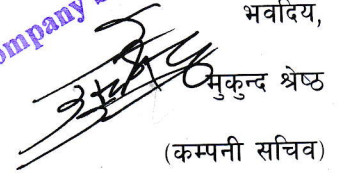 ompany
भवदिय,
मुकुन्द श्रेष्ठ
(कम्पनी सचिव)